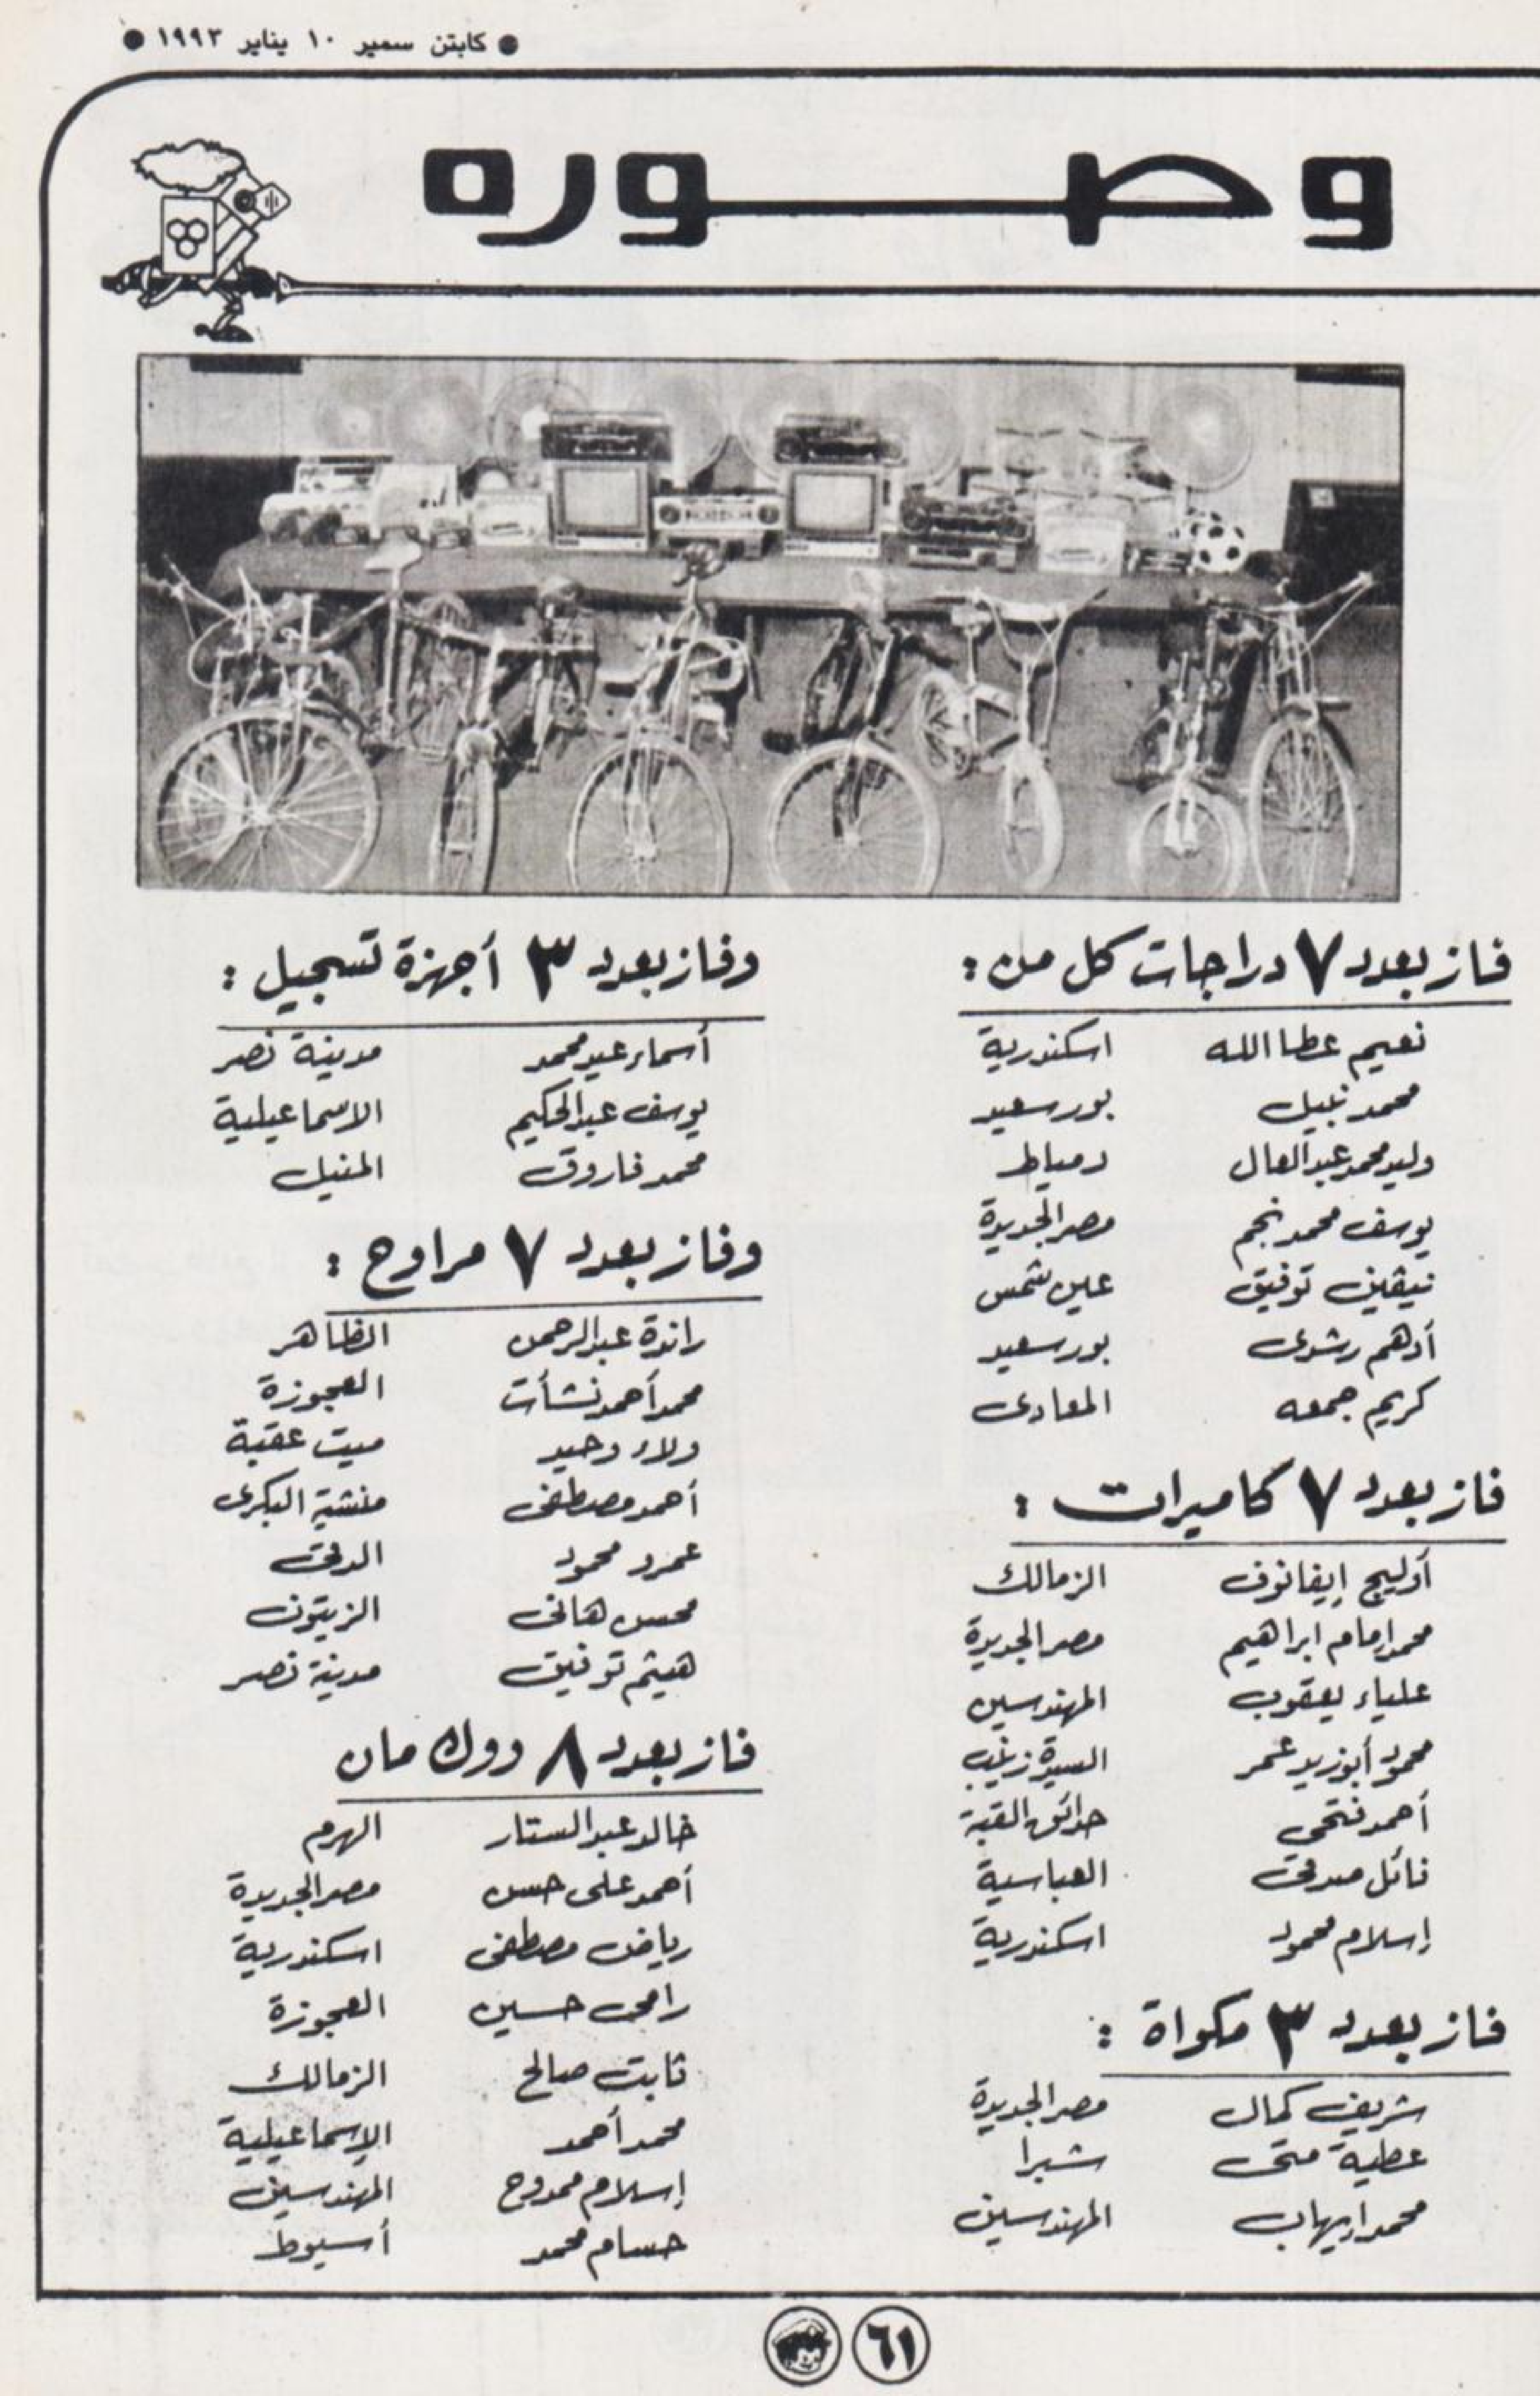 ● كابتن سمير ١٠ يناير ١٩٩٣ ●
وصوره
فاز بعدد ٧ دراجات كل من :
نعيم عطا الله اسكندرية
محمد نبيل بورسعيد
وليد محمد عبد العال دمياط
يوسف محمد نجم مصر الجديدة
نيڤين توفيق عين شمس
أدهم رشدى بورسعيد
كريم جمعه المعادى
فاز بعدد ٧ كاميرات :
أوليج إيفانوف الزمالك
محمد إمام ابراهيم مصر الجديدة
علياء يعقوب المهندسين
محمود أبوزيد عمر السيدة زينب
أحمد فتحى حدائق القبة
نائل صدقى العباسية
إسلام محمود اسكندرية
فاز بعدد ٣ مكواة :
شريف كمال مصر الجديدة
عطية متى شبرا
محمد ايهاب المهندسين
وفاز بعدد ٣ أجهزة تسجيل :
أسماء عيد محمد مدينة نصر
يوسف عبد الحكيم الاسماعيلية
محمد فاروق المنيل
وفاز بعدد ٧ مراوح :
راندة عبد الرحمن الظاهر
محمد أحمد نشأت العجوزة
ولاء وحيد ميت عقبة
أحمد مصطفى منشية البكرى
عمرو محمود الدقى
محسن هانى الزيتون
هيثم توفيق مدينة نصر
فاز بعدد ٨ ووك مان
خالد عبد الستار الهرم
أحمد على حسن مصر الجديدة
رياض مصطفى اسكندرية
رامى حسين العجوزة
ثابت صالح الزمالك
محمد أحمد الإسماعيلية
إسلام ممدوح المهندسين
حسام محمد أسيوط
٦١